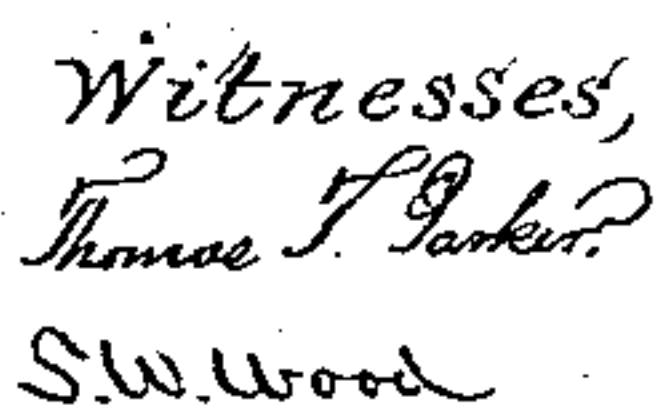 Witnesses,
Thomas T. Parker.
S. W. Wood